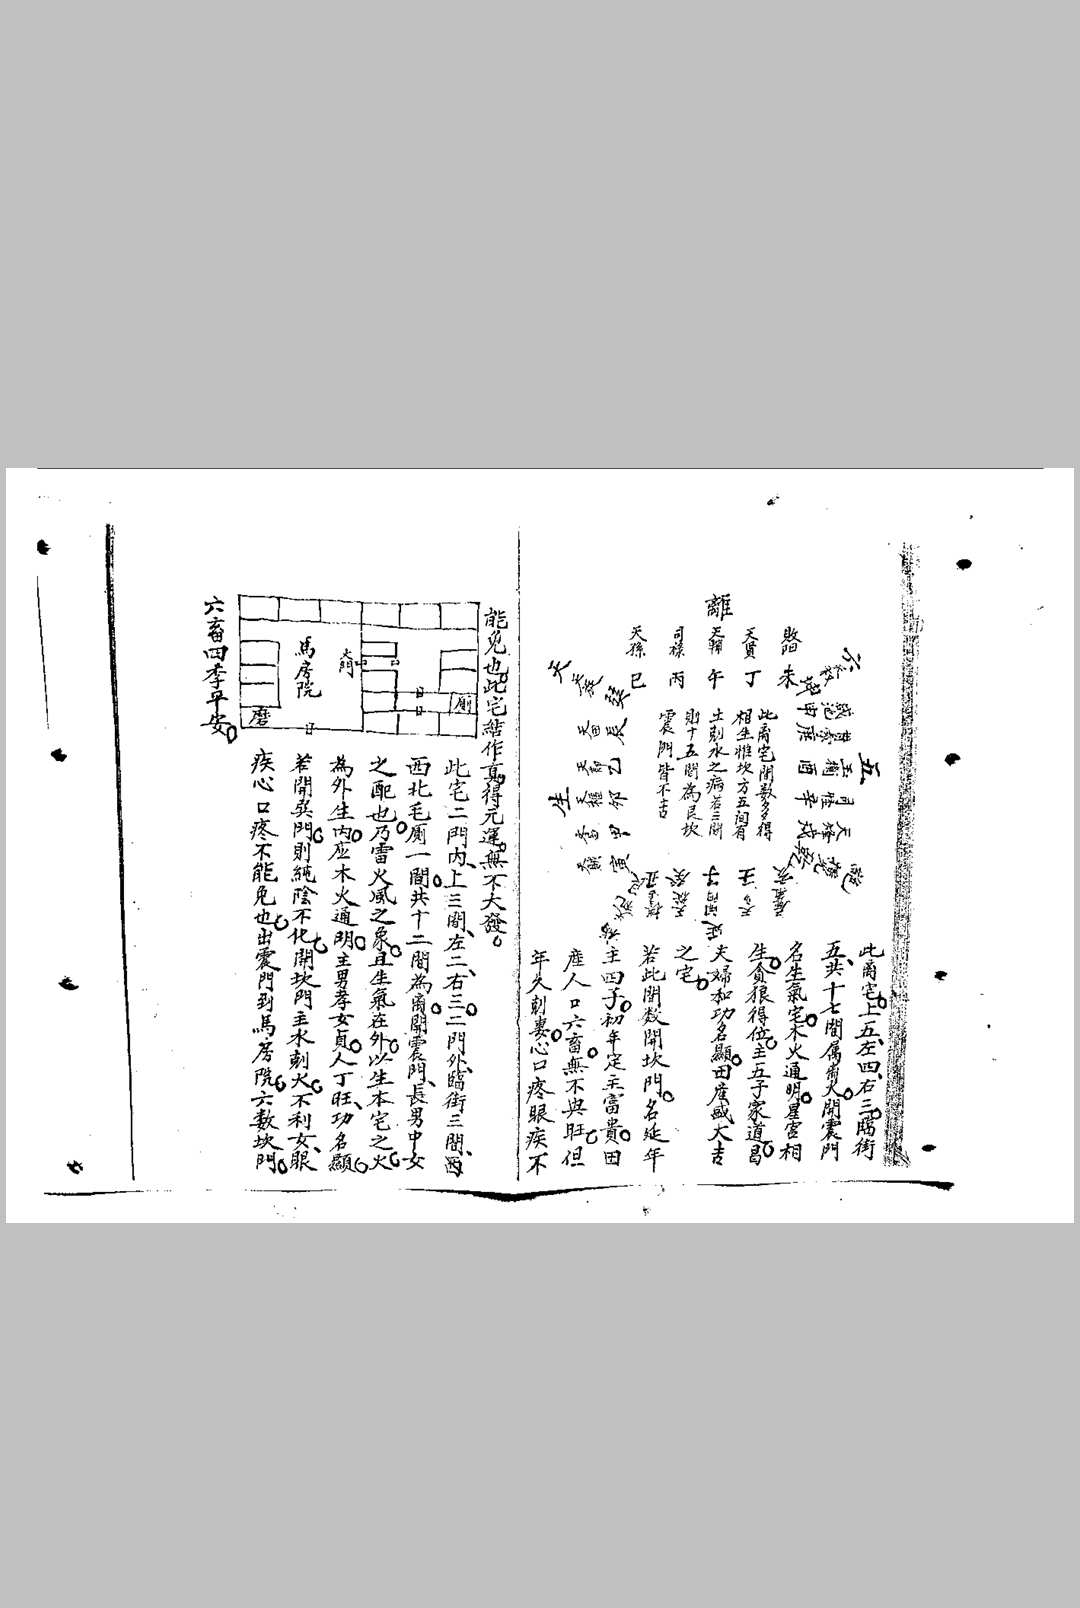 離
敗陽
未
天貫
丁
天輔
午
司祿
丙
天孫
巳
五
六
坤申庚酉辛戌乾
亥
壬
子
癸
丑
艮
寅甲卯乙辰巽
天
生
此离宅間数多多得
相生惟坎方五间有
土剋水之病若三间
則十五間為艮坎
震門皆不吉
此离宅上五左四右三臨街
五共十七間属离火開震門
名生氣宅木火通明星宫相
生貪狼得位主五子家道昌
夫婦和功名顯田産盛大吉
之宅
若此間数開坎門名延年
主四子初年定主富貴田
産人口六畜無不興旺但
年久剋妻心口疼眼疾不
能免也此宅結作真得元運無不大發
馬房院
大門
廁
磨
此宅二門内上三間左二右三二門外臨街三間西
西北毛厕一間共十二間為离開震門長男中女
之配也乃雷火風之象且生氣在外以生本宅之火
為外生内应木火通明主男孝女貞人丁旺功名顯
若開巽門則純陰不化開坎門主水剋火不利女眼
疾心口疼不能免也出震門到馬房院六数坎門
六畜四季平安